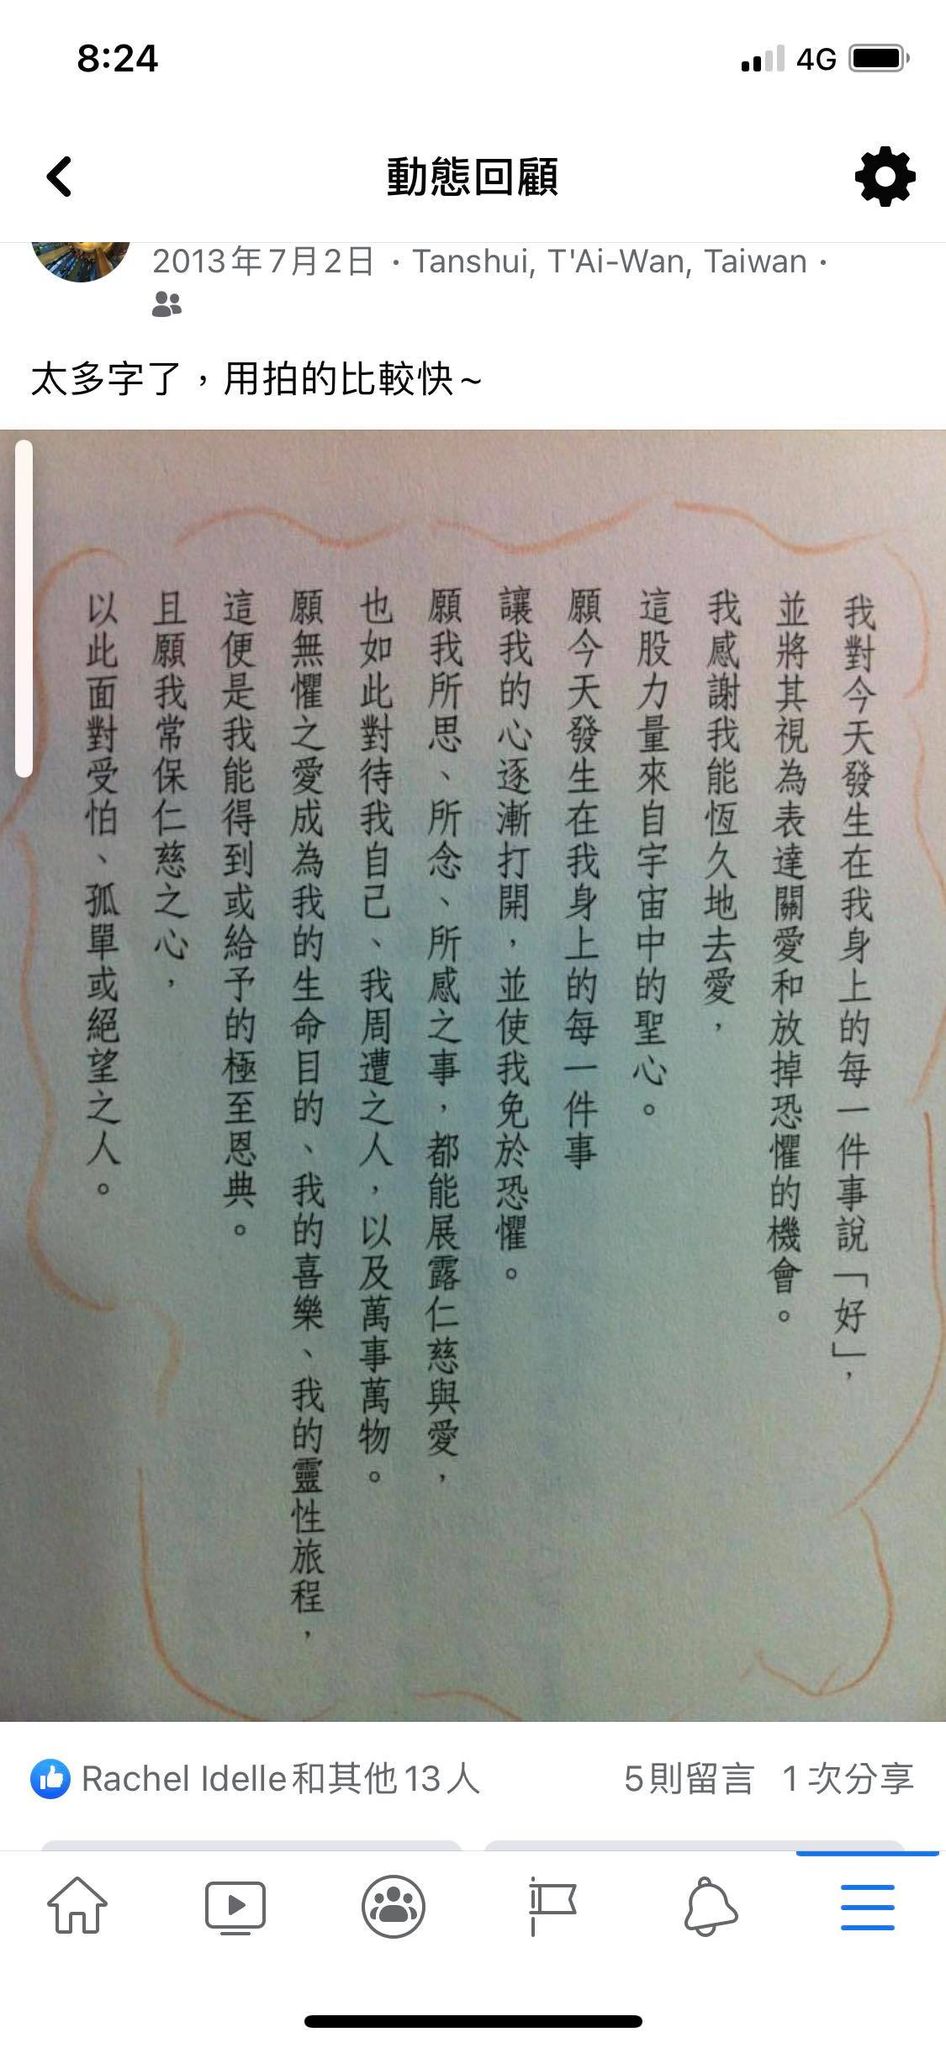 8:24
4G
動態回顧
2013年7月2日 · Tanshui, T'Ai-Wan, Taiwan ·
太多字了，用拍的比較快~
我對今天發生在我身上的每一件事說「好」，
並將其視為表達關愛和放掉恐懼的機會。
我感謝我能恆久地去愛，
這股力量來自宇宙中的聖心。
願今天發生在我身上的每一件事
讓我的心逐漸打開，並使我免於恐懼。
願我所思、所念、所感之事，都能展露仁慈與愛，
也如此對待我自己、我周遭之人，以及萬事萬物。
願無懼之愛成為我的生命目的、我的喜樂、我的靈性旅程，
這便是我能得到或給予的極至恩典。
且願我常保仁慈之心，
以此面對受怕、孤單或絕望之人。
Rachel Idelle和其他13人
5則留言 1次分享